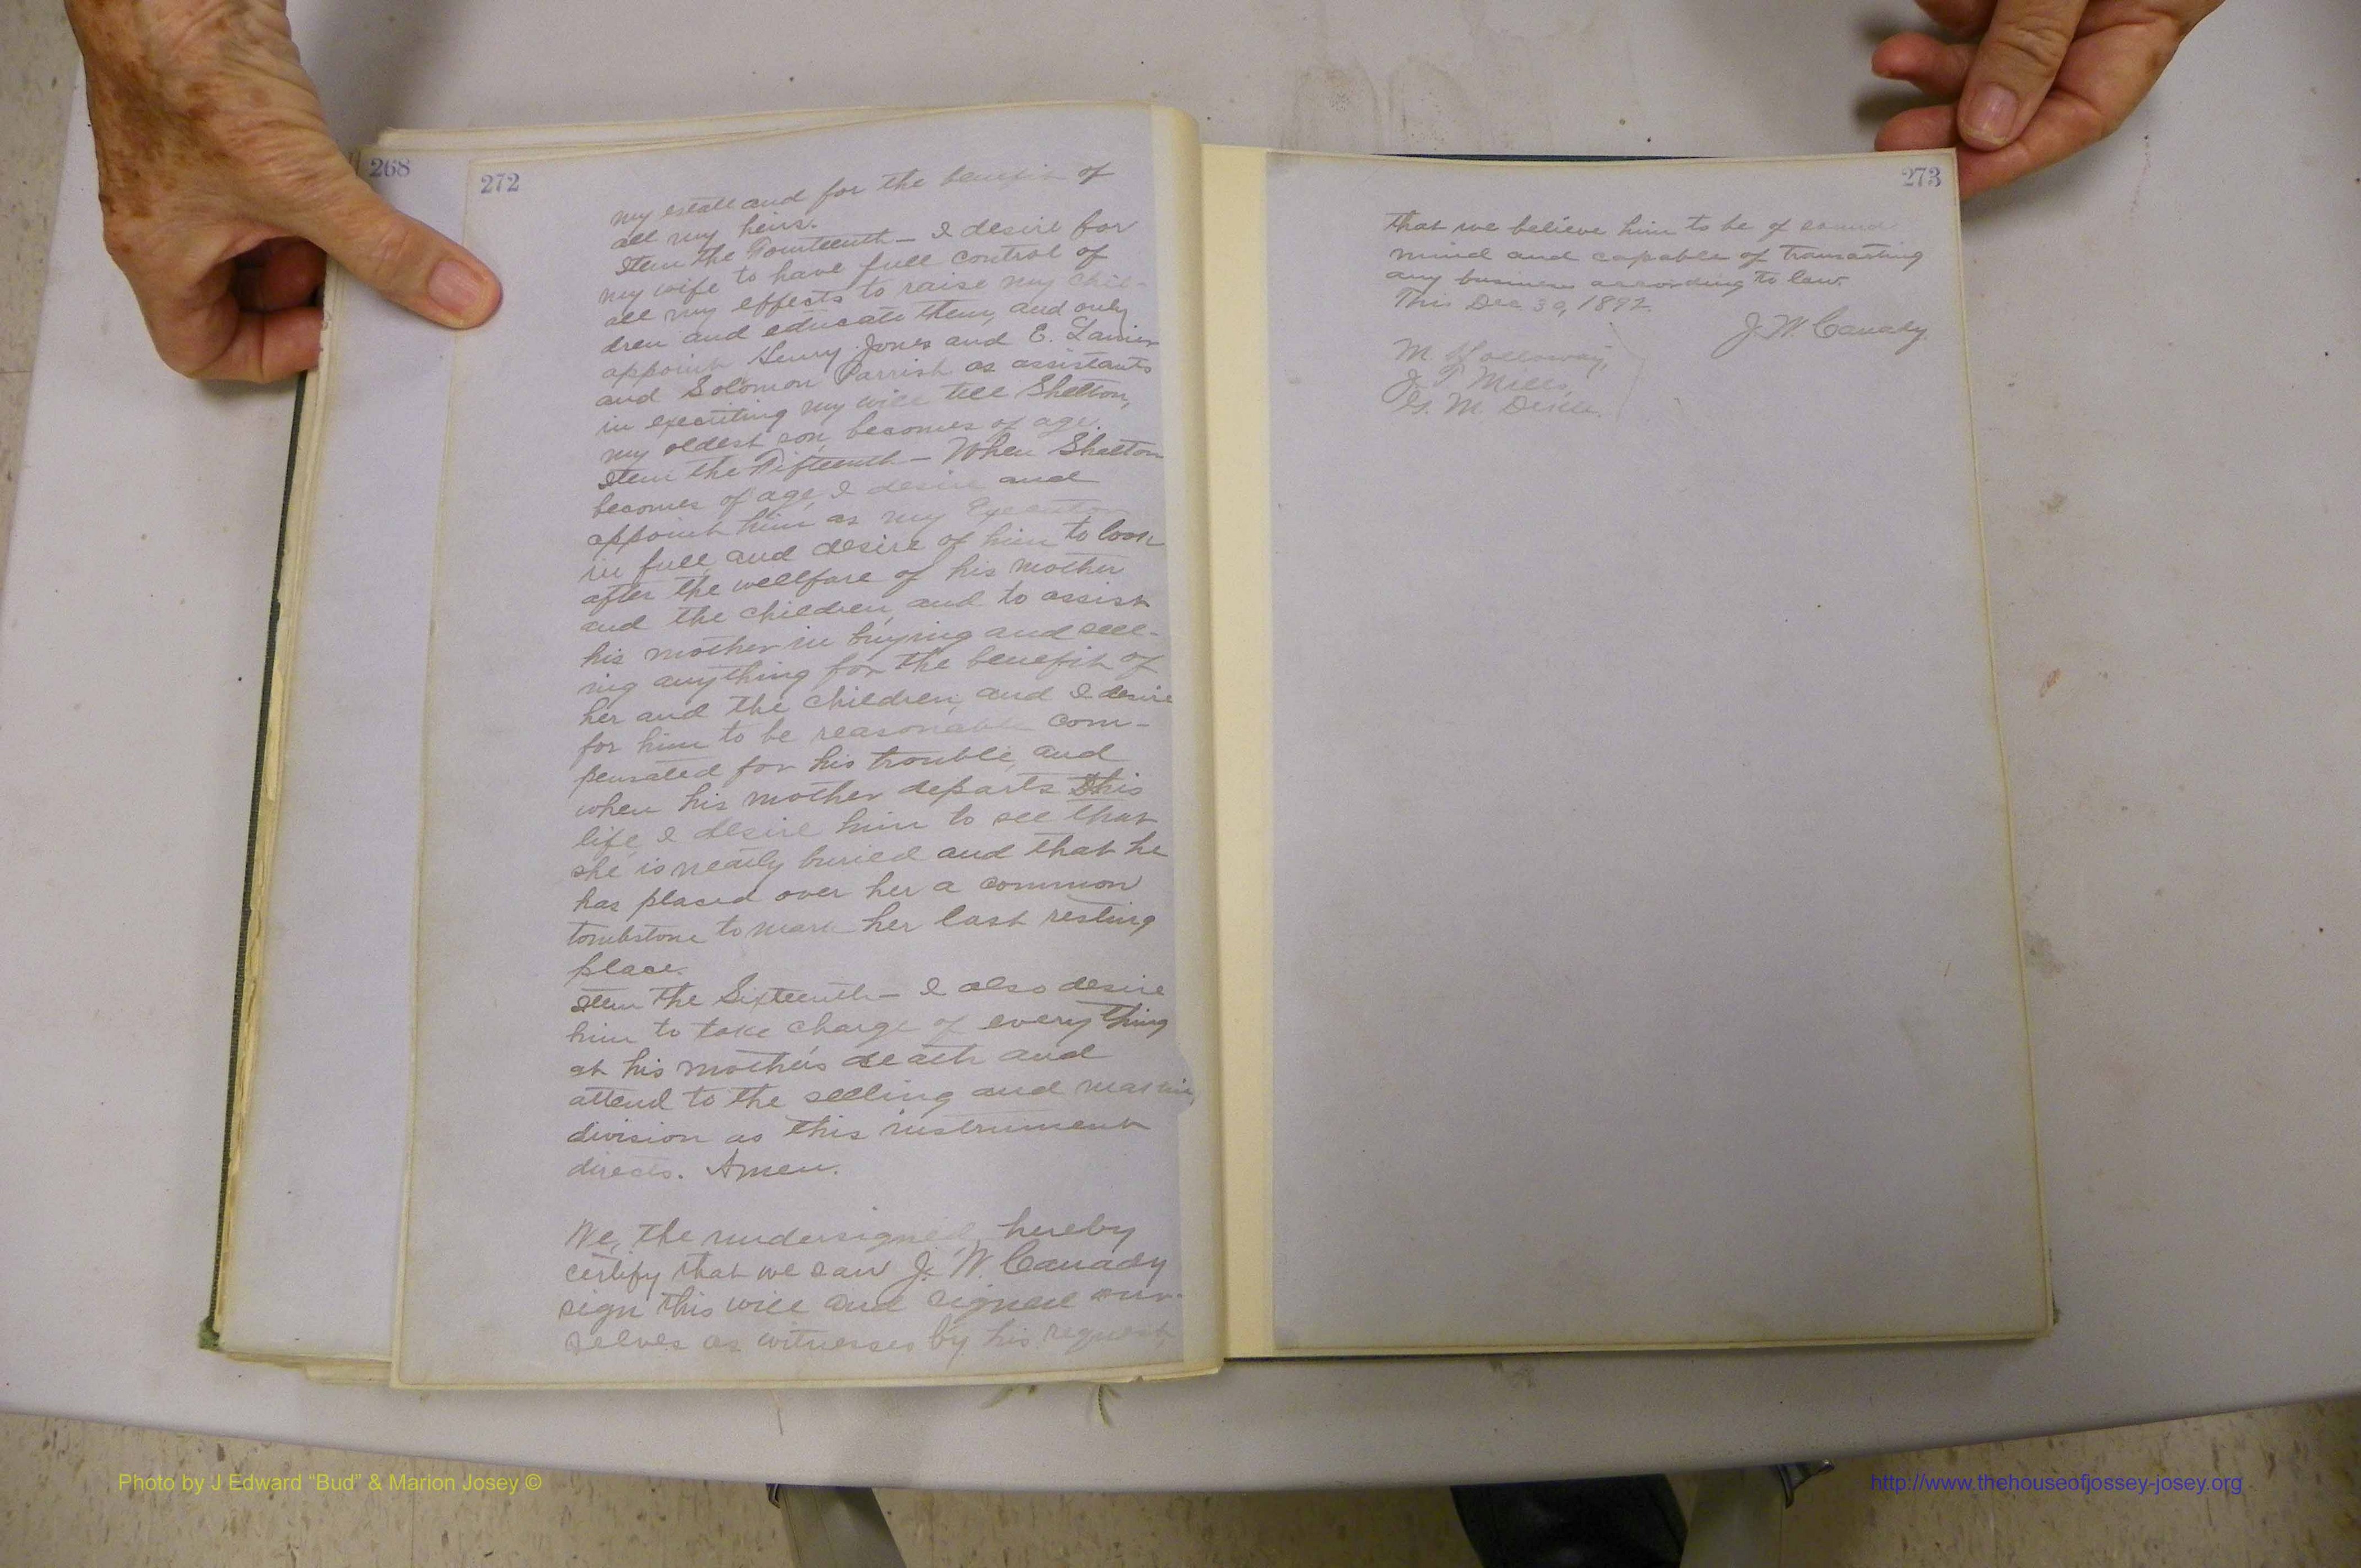 268
272
my estate and for the benefit of
all my heirs.
Item the Fourteenth — I desire for
my wife to have full control of
all my effects to raise my chil-
dren and educate them, and only
appoint Henry Jones and E. Lanier
and Solomon Parrish as assistants
in executing my will till Shelton,
my oldest son, becomes of age.
Item the Fifteenth — When Shelton
becomes of age, I desire and
appoint him as my Executor
in full, and desire of him to look
after the wellfare of his mother
and the children, and to assist
his mother in buying and sell-
ing anything for the benefit of
her and the children, and I desire
for him to be reasonable com-
pensated for his trouble, and
when his mother departs this
life, I desire him to see that
she is neatly buried and that he
has placed over her a common
tombstone to mark her last resting
place.
Item the Sixteenth — I also desire
him to take charge of every thing
at his mother's death and
attend to the selling and making
division as this instrument
directs. Amen.
We, the undersigned, hereby
certify that we saw J. W. Canady
sign this will and signed our-
selves as witnesses by his request,
273
that we believe him to be of sound
mind and capable of transacting
any business according to law.
This Dec 30, 1892.
J. W. Canady.
M. Holloway,
J. T. Mills,